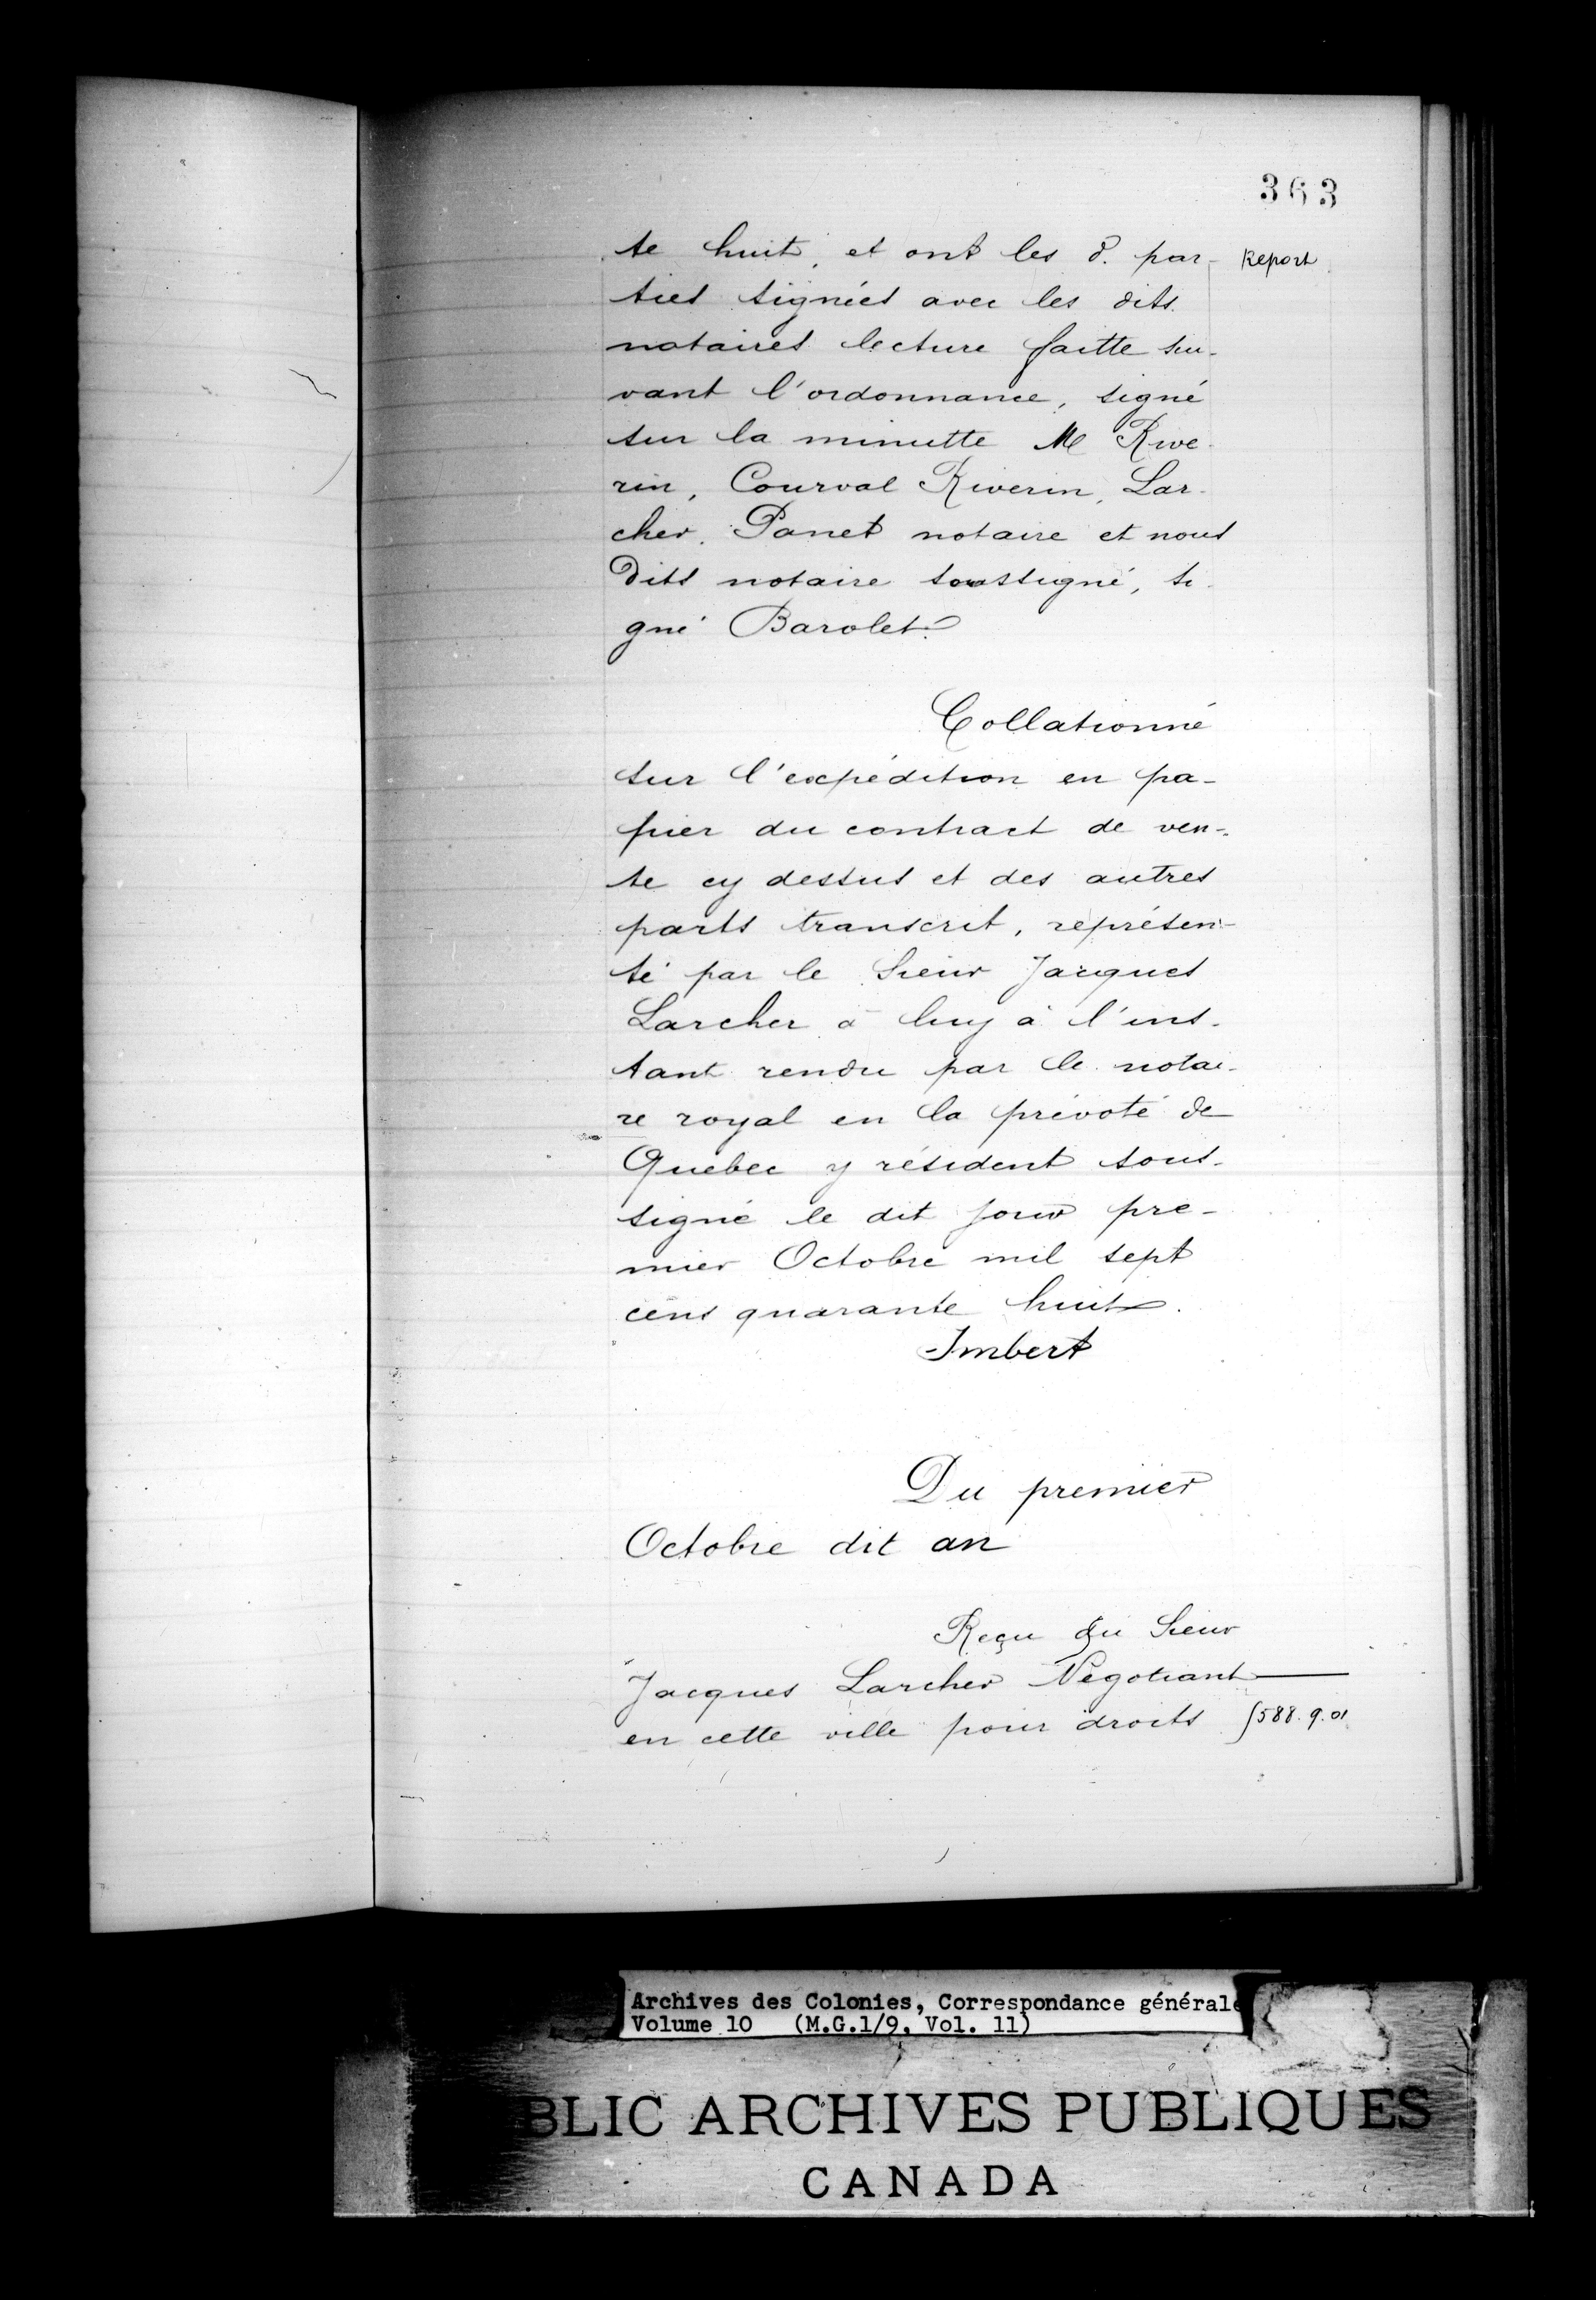 363
te huit, et ont les d. par- Report
ties signées avec les dits
notaires lecture faitte sui-
vant l'ordonnance, signé
sur la minutte M Rive-
rin, Courval Riverin, Lar-
cher. Panet notaire et nous
Dits notaire soussigné, si-
gné Barolet.
Collationné
sur l'expédition en pa-
pier du contract de ven-
te cy dessus et des autres
parts transcrit, représen-
té par le Sieur Jacques
Larcher à luy à l'ins-
tant rendu par le notai-
re royal en la prévoté de
Quebec y résident sous-
signé le dit jour pre-
mier Octobre mil sept
cens quarante huit.
Imbert
Du premier
Octobre dit an
Reçu du Sieur
Jacques Larcher Négotiant
en cette ville pour droits 588.9.01
Archives des Colonies, Correspondance générale
Volume 10 (M.G.1/9, Vol. 11)
BLIC ARCHIVES PUBLIQUES
CANADA